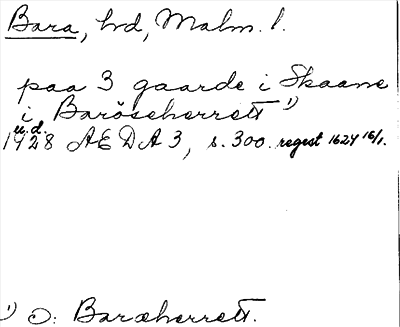 Bara, hd, Malm. l.
paa 3 gaarde i Skaane
i Baröseherrett 1)
u.d.
1428 AEDA 3, s. 300. regest 1624 16/1.
1) Ɔ: Baraherrett.